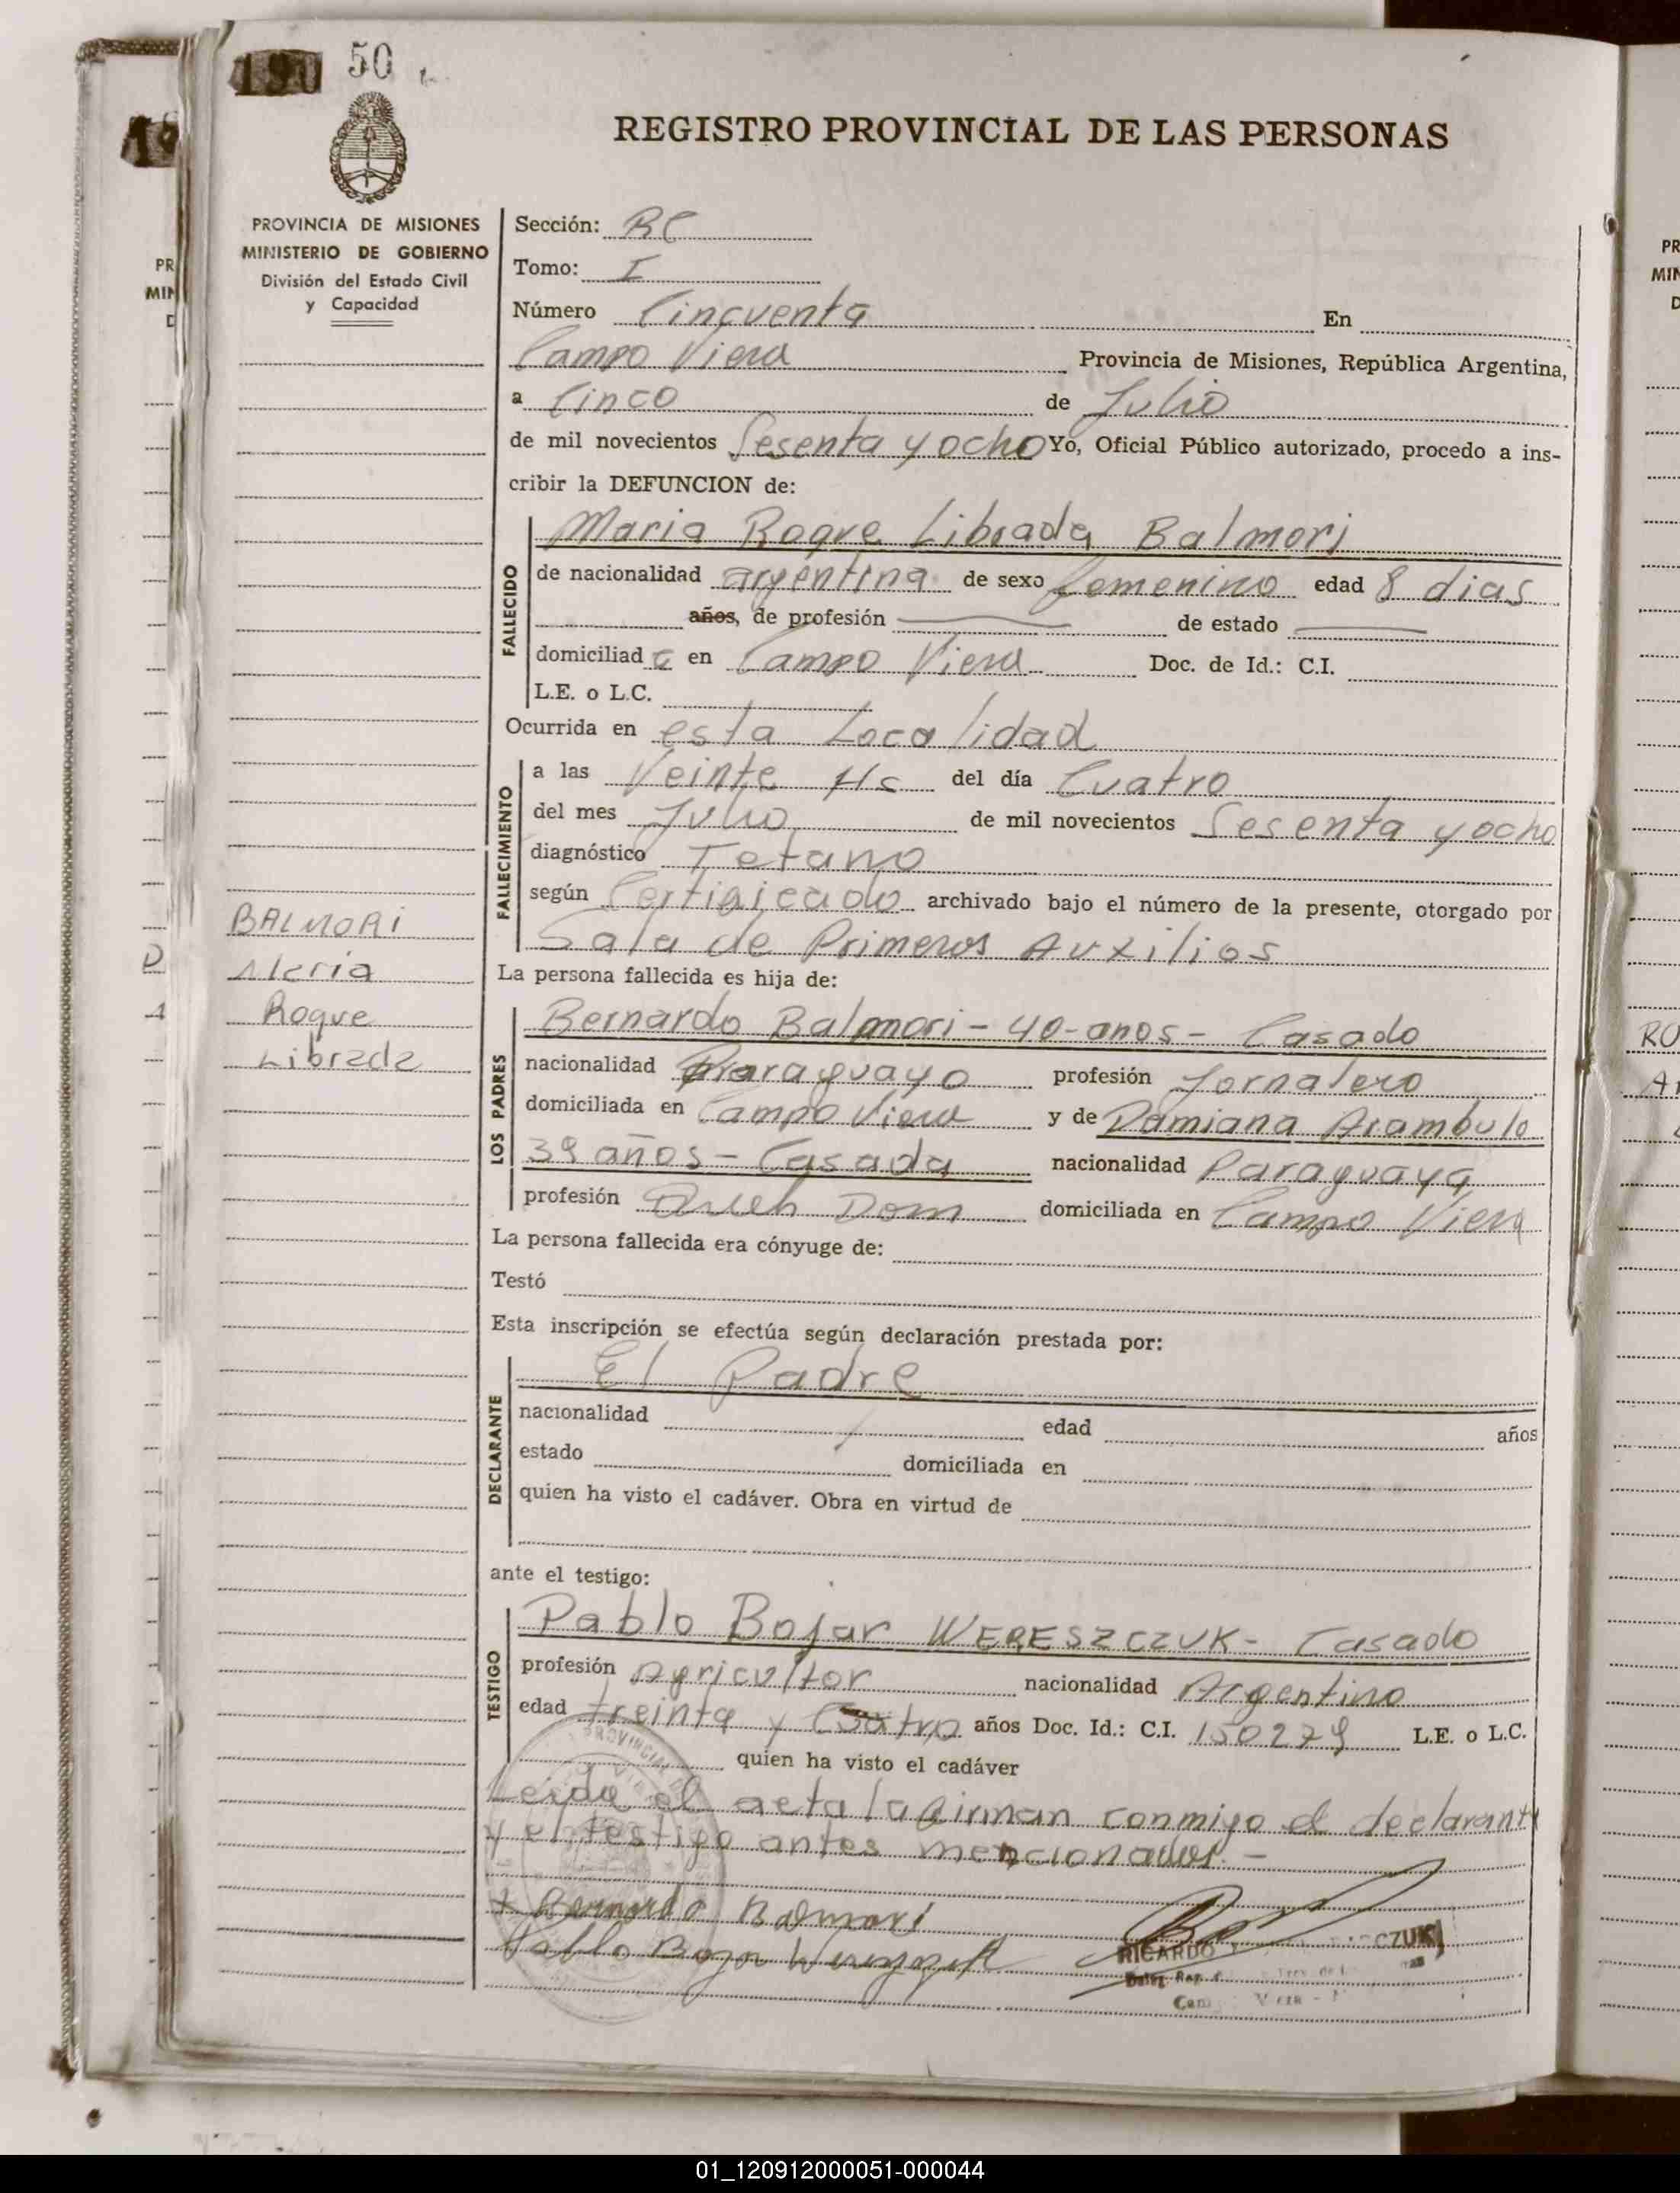 50
REGISTRO PROVINCIAL DE LAS PERSONAS
PROVINCIA DE MISIONES
MINISTERIO DE GOBIERNO
División del Estado Civil
y Capacidad
Sección: RC
Tomo: I
Número Cincuenta En
Campo Viera Provincia de Misiones, República Argentina,
a Cinco de Julio
de mil novecientos Sesenta y ocho Yo, Oficial Público autorizado, procedo a ins-
cribir la DEFUNCION de:
FALLECIDO
Maria Roque Librada Balmori
de nacionalidad argentina de sexo femenino edad 8 dias
años, de profesión de estado
domiciliad a en Campo Viera Doc. de Id.: C.I.
L.E. o L.C.
Ocurrida en esta Localidad
FALLECIMIENTO
a las Veinte Hs del día Cuatro
del mes Julio de mil novecientos Sesenta y ocho
diagnóstico Tetano
según Certificado archivado bajo el número de la presente, otorgado por
Sala de Primeros Auxilios
BALMORI
Maria
Roque
Librada
La persona fallecida es hija de:
LOS PADRES
Bernardo Balmori - 40 - anos - Casado
nacionalidad Paraguayo profesión Jornalero
domiciliada en Campo Viera y de Damiana Arambulo
39 años - Casada nacionalidad Paraguaya
profesión Queh Dom domiciliada en Campo Viera
La persona fallecida era cónyuge de:
Testó
Esta inscripción se efectúa según declaración prestada por:
DECLARANTE
El Padre
nacionalidad edad años
estado domiciliada en
quien ha visto el cadáver. Obra en virtud de
ante el testigo:
TESTIGO
Pablo Bojar WERESZCZUK - Casado
profesión Agricultor nacionalidad Argentino
edad treinta y Cuatro años Doc. Id.: C.I. 150279 L.E. o L.C.
quien ha visto el cadáver
Leida el acta la firman conmigo el declarante
y el testigo antes mencionados. -
Bernardo Balmori
Pablo Bojar
RICARDO CZUK
01_120912000051-000044